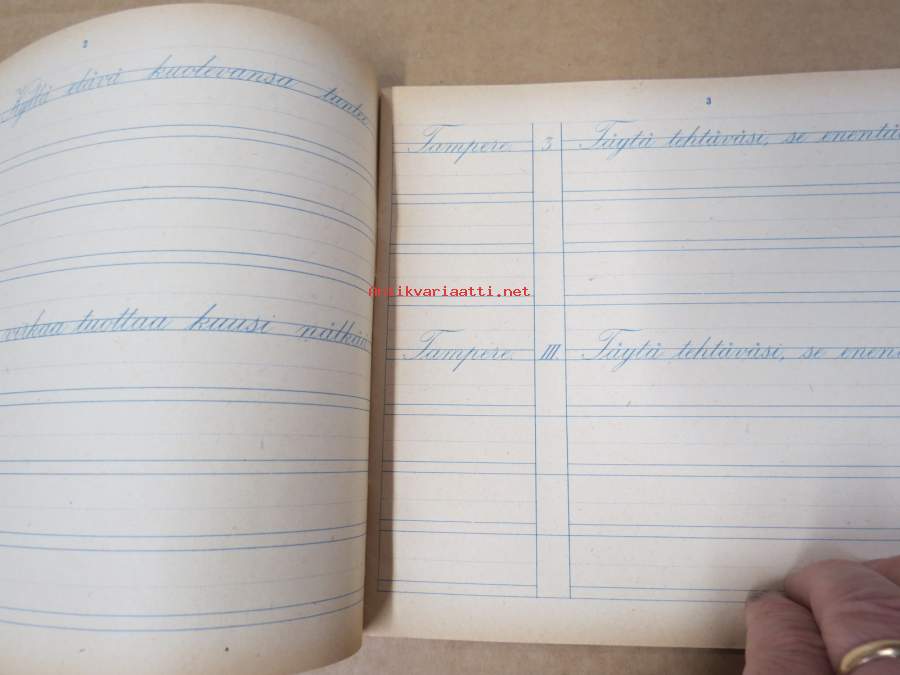 2
Kyllä elävä kuolevansa tuntee
virkaa tuottaa kuusi nälkää
3
Tampere. 3. Täytä tehtäväsi, se enentää
antiikvariaatti.net
Tampere. III. Täytä tehtäväsi, se enent